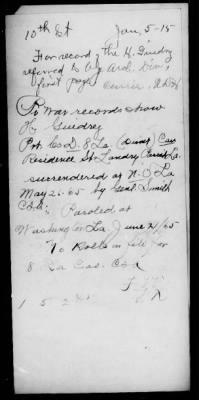 10th St Jan, 5-15
For record, the H. Guidry
referred to by Ard. Div's
first page
War records show
H. Guedry
Pvt. Co D. 8 La Cav
Residence St. Landry Parish La.
surrendered at N.O La
May 26.65 by Genl. Smith
C.S.A; Paroled at
Washington La June 21/65
No Rolls on file for
8 La Cav. CSA
1 5 2